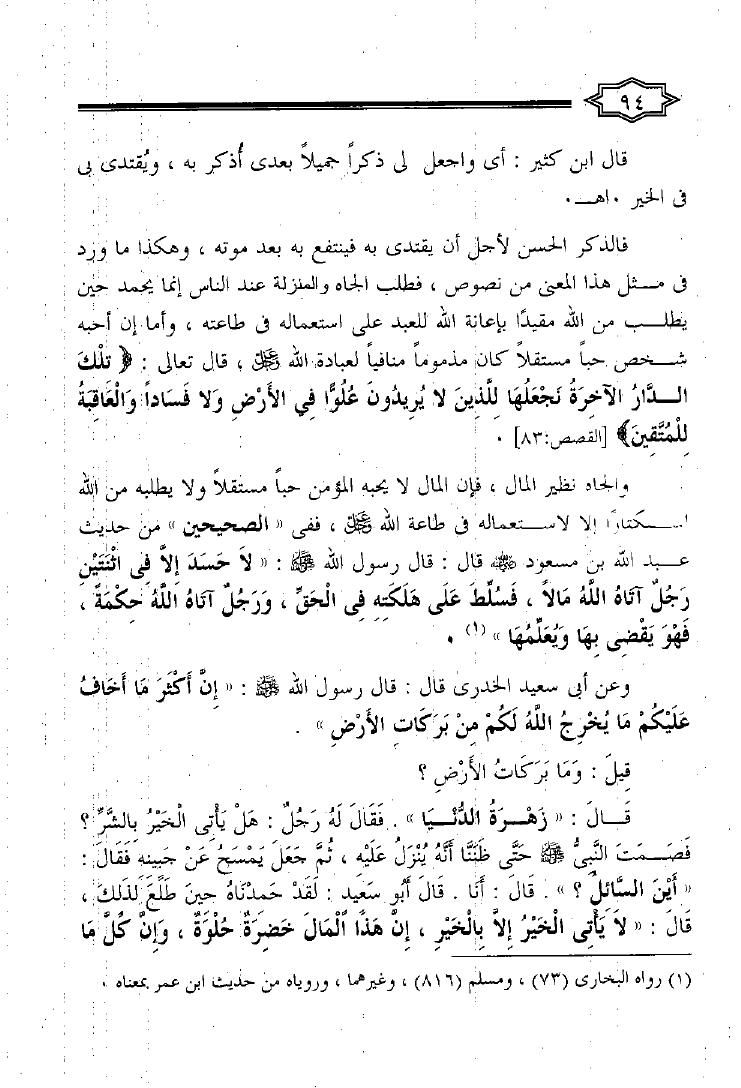 ٩٤
قال ابن كثير : أى واجعل لى ذكراً جميلاً بعدى أُذكر به ، ويُقتدى بى
فى الخير ٠اهـ٠
فالذكر الحسن لأجل أن يقتدى به فينتفع به بعد موته ، وهكذا ما ورد
فى مثل هذا المعنى من نصوص ، فطلب الجاه والمنزلة عند الناس إنما يحمد حين
يطلب من الله مقيدًا بإعانة الله للعبد على استعماله فى طاعته ، وأما إن أحبه
شخص حباً مستقلاً كان مذموماً منافياً لعبادة الله عز وجل ، قال تعالى : ﴿ تِلْكَ
الدَّارُ الآخِرَةُ نَجْعَلُهَا لِلَّذِينَ لا يُرِيدُونَ عُلُوًّا فِي الأَرْضِ وَلا فَسَاداً وَالْعَاقِبَةُ
لِلْمُتَّقِينَ﴾ [القصص:٨٣] ٠
والجاه نظير المال ، فإن المال لا يحبه المؤمن حباً مستقلاً ولا يطلبه من الله
استكثارًا إلا لاستعماله فى طاعة الله عز وجل ، ففى « الصحيحين » من حديث
عبد الله بن مسعود رضي الله عنه قال : قال رسول الله ﷺ : « لاَ حَسَدَ إِلاَّ فِى اثْنَتَيْنِ
رَجُلٌ آتَاهُ اللَّهُ مَالاً ، فَسُلِّطَ عَلَى هَلَكَتِهِ فِى الْحَقِّ ، وَرَجُلٌ آتَاهُ اللَّهُ حِكْمَةً ،
فَهُوَ يَقْضِى بِهَا وَيُعَلِّمُهَا » (١) ٠
وعن أبى سعيد الخدرى قال : قال رسول الله ﷺ : « إِنَّ أَكْثَرَ مَا أَخَافُ
عَلَيْكُمْ مَا يُخْرِجُ اللَّهُ لَكُمْ مِنْ بَرَكَاتِ الأَرْضِ » .
قِيلَ : وَمَا بَرَكَاتُ الأَرْضِ ؟
قَالَ : « زَهْرَةُ الدُّنْيَا » . فَقَالَ لَهُ رَجُلٌ : هَلْ يَأْتِى الْخَيْرُ بِالشَّرِّ ؟
فَصَمَتَ النَّبِىُّ ﷺ حَتَّى ظَنَنَّا أَنَّهُ يُنْزَلُ عَلَيْهِ ، ثُمَّ جَعَلَ يَمْسَحُ عَنْ جَبِينِهِ فَقَالَ :
« أَيْنَ السَّائِلُ ؟ » . قَالَ : أَنَا . قَالَ أَبُو سَعِيد : لَقَدْ حَمِدْنَاهُ حِينَ طَلَعَ لِذَلِكَ ،
قَالَ : « لاَ يَأْتِى الْخَيْرُ إِلاَّ بِالْخَيْرِ ، إِنَّ هَذَا الْمَالَ خَضِرَةٌ حُلْوَةٌ ، وَإِنَّ كُلَّ مَا
(١) رواه البخارى (٧٣) ، ومسلم (٨١٦) ، وغيرهما ، وروياه من حديث ابن عمر بمعناه ٠